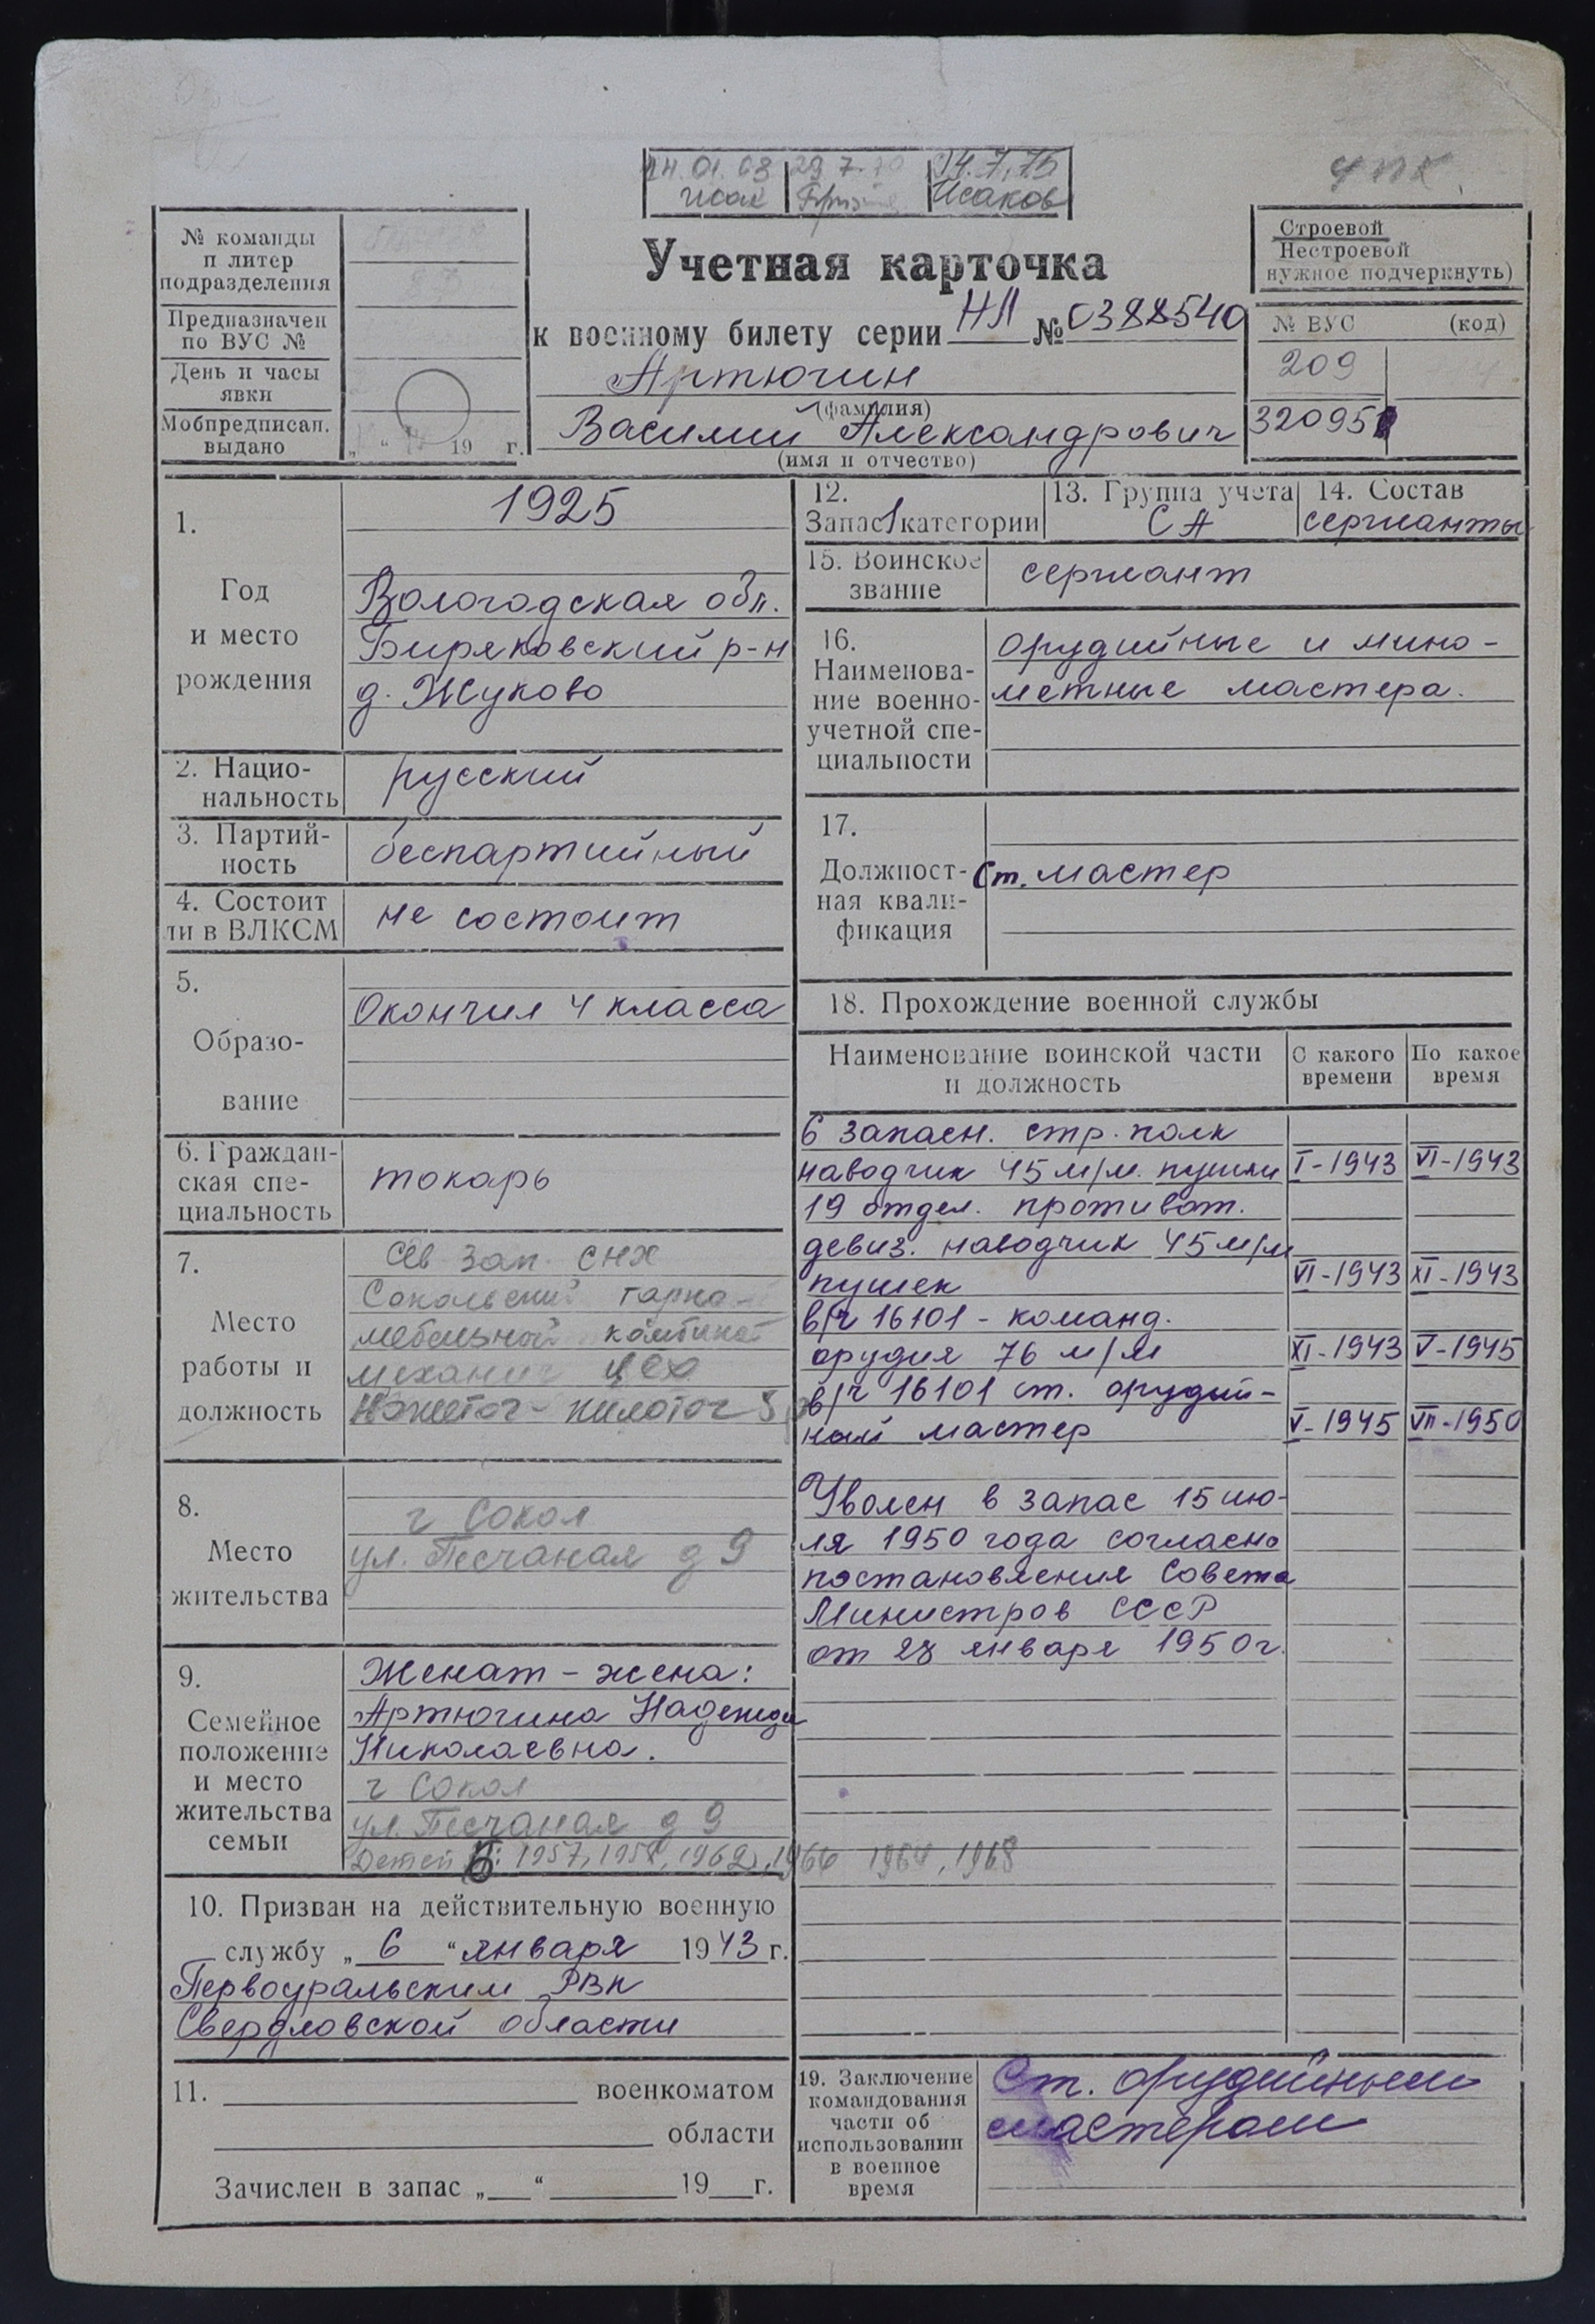 14.01.63 29.7.70 14.7.75
Исак Исаков
№ команды
и литер
подразделения
Предназначен
по ВУС №
День и часы
явки
Мобпредписан.
выдано
„ “ 19 г.
Учетная карточка
к военному билету серии НЛ № 0388540
Артюгин
(фамилия)
Василий Александрович
(имя и отчество)
Строевой
Нестроевой
нужное подчеркнуть)
№ ВУС (код)
209
320951
1.
Год
и место
рождения
1925
Вологодская обл.
Биряковский р-н
д. Жуково
2. Нацио-
нальность
русский
3. Партий-
ность
беспартийный
4. Состоит
ли в ВЛКСМ
не состоит
5.
Образо-
вание
Окончил 4 класса
6. Граждан-
ская спе-
циальность
токарь
7.
Место
работы и
должность
Сев Зап. СНХ
Сокольский тарно-
мебельный комбинат
механич цех
Ножеточ-пилоточ
8.
Место
жительства
г Сокол
ул. Песчаная д 9
9.
Семейное
положение
и место
жительства
семьи
Женат - жена:
Артюгина Надежда
Николаевна.
г Сокол
ул. Песчаная д 9
Детей 6: 1957, 1958, 1962, 1966 1964, 1968
10. Призван на действительную военную
службу „ 6 “ января 1943 г.
Первоуральским РВК
Свердловской области
11. военкоматом
области
Зачислен в запас „ “ 19 г.
12.
Запас 1 категории
13. Группа учета
СА
14. Состав
сержанты
15. Воинское
звание
сержант
16.
Наименова-
ние военно-
учетной спе-
циальности
орудийные и мино-
метные мастера.
17.
Должност-
ная квали-
фикация
Ст. мастер
18. Прохождение военной службы
Наименование воинской части
и должность
С какого
времени
По какое
время
6 запасн. стр. полк
наводчик 45 м/м. пушки I-1943 VI-1943
19 отдел. противот.
девиз. наводчик 45 м/м
пушек VI-1943 XI-1943
в/ч 16101 - команд.
орудия 76 м/м XI-1943 V-1945
в/ч 16101 ст. орудий-
ный мастер V-1945 VII-1950
Уволен в запас 15 ию-
ля 1950 года согласно
постановления Совета
Министров СССР
от 28 января 1950 г.
19. Заключение
командования
части об
использовании
в военное
время
Ст. орудийным
мастером